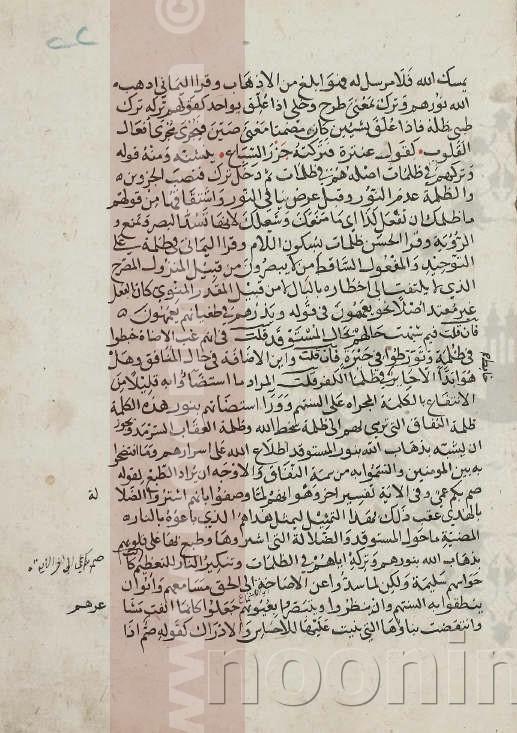 يمسك الله فلا مرسل له فهو ابلغ من الاذهاب وقرا اليماني اذهب
الله نورهم وترك بمعنى طرح وخلى اذا علق بواحد كقولهم تركه ترك
ظبي ظله فاذا علق بشيئين كان مضمنا معنى صير فيجري مجرى افعال
القلوب كقول عنترة فتركته جزر السباع ينشنه ومنه قوله
وتركهم في ظلمات اصله هم في ظلمات ثم دخل ترك فنصب الجزوين
والظلمة عدم النور وقيل عرض ينافي النور واشتقاقها من قولهم
ما ظلمك ان تفعل كذا اي ما منعك وشغلك لانها تسد البصر وتمنع
الروية وقرا الحسن ظلمات بسكون اللام وقرا اليماني في ظلمة على
التوحيد والمفعول الساقط من لا يبصرون من قبيل المتروك المطرح
الذي لا يلتفت الى اخطاره بالبال لا من قبيل المقدر المنوي كان الفعل
غير متعد اصلا نحو يعمهون في قوله ويذرهم في طغيانهم يعمهون
فان قلت فيم شبهت حالهم بحال المستوقد قلت في انهم غب الاضاءة خبطوا
في ظلمة وتورطوا في حيرة فان قلت واين الاضاءة في حال المنافق وهل
هو ابدا الا حائر في ظلما الكفر قلت المراد ما استضاؤا به قليلا من
الانتفاع بالكلمة المجراة على السنتهم ووراء استضاءتهم بنور هذه الكلمة
ظلمة النفاق التي ترمي بهم الى ظلمة سخط الله وظلمة العقاب السرمد ويجوز
ان يشبه بذهاب الله بنور المستوقد اطلاع الله على اسرارهم وما افتضحوا
به بين المومنين واتسموا به من سمة النفاق والاوجه ان يراد الطبع لقوله
صم بكم عمي وفي الاية تفسير اخر وهو انهم لما وصفوا بانهم اشتروا الضلالة
بالهدى عقب ذلك بهذا التمثيل ليمثل هداهم الذي باعوه بالنار
المضية ما حول المستوقد والضلالة التي اشتروها وطبع بها على قلوبهم
بذهاب الله بنورهم وتركه اياهم في الظلمات وتنكير النار للتعظيم كانت
حواسهم سليمة ولكن لما سدوا عن الاصاخة الى الحق مسامعهم وابوا ان
ينطقوا به السنتهم وان ينظروا ويتبصروا بعيونهم جعلوا كانما ايفت مشا
وانتقضت بناؤها التي بنيت عليها للاحساس والادراك كقوله صم اذا